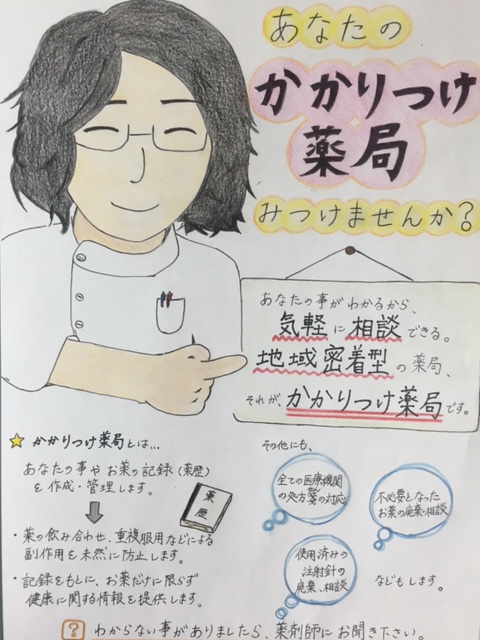 あなたの
かかりつけ
薬局
みつけませんか?
あなたの事がわかるから、
気軽に相談できる。
地域密着型の薬局、
それが、かかりつけ薬局です。
かかりつけ薬局とは…
あなたの事やお薬の記録(薬歴)
を作成・管理します。
薬歴
・薬の飲み合わせ、重複服用などによる
副作用を未然に防止します。
・記録をもとに、お薬だけに限らず
健康に関する情報を提供します。
その他にも、
全ての医療機関
の処方箋の対応。
不必要となった
お薬の廃棄・相談
使用済みの
注射針の
廃棄、相談
などもします。
? わからない事がありましたら、薬剤師にお聞き下さい。